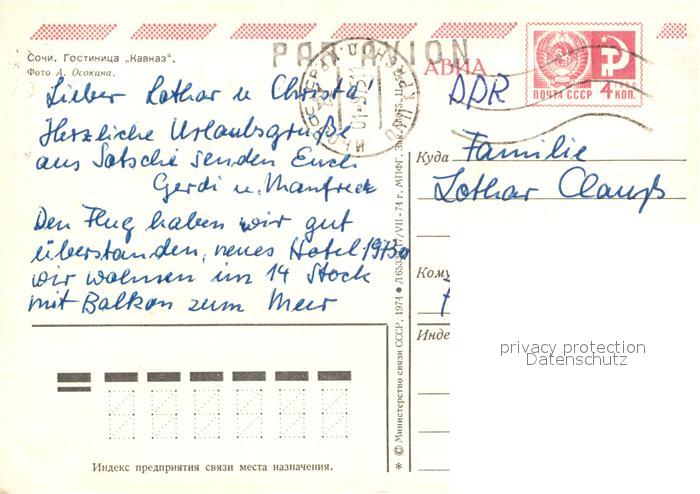 Сочи. Гостиница „Кавказ".
Фото А. Осокина.
PAR AVION
АВИА
ПОЧТА СССР 4 КОП.
Lieber Lothar u Christa!
Herzliche Urlaubsgrüße
aus Sotschi senden Euch
Gerdi u. Manfred
Den Flug haben wir gut
überstanden, neues Hotel 1975
wir wohnen im 14 Stock
mit Balkon zum Meer
DDR
Куда Familie
Lothar Clauß
Кому
Инде
privacy protection
Datenschutz
© Министерство связи СССР, 1974
VII-74 г. МПФГ.
Индекс предприятия связи места назначения.